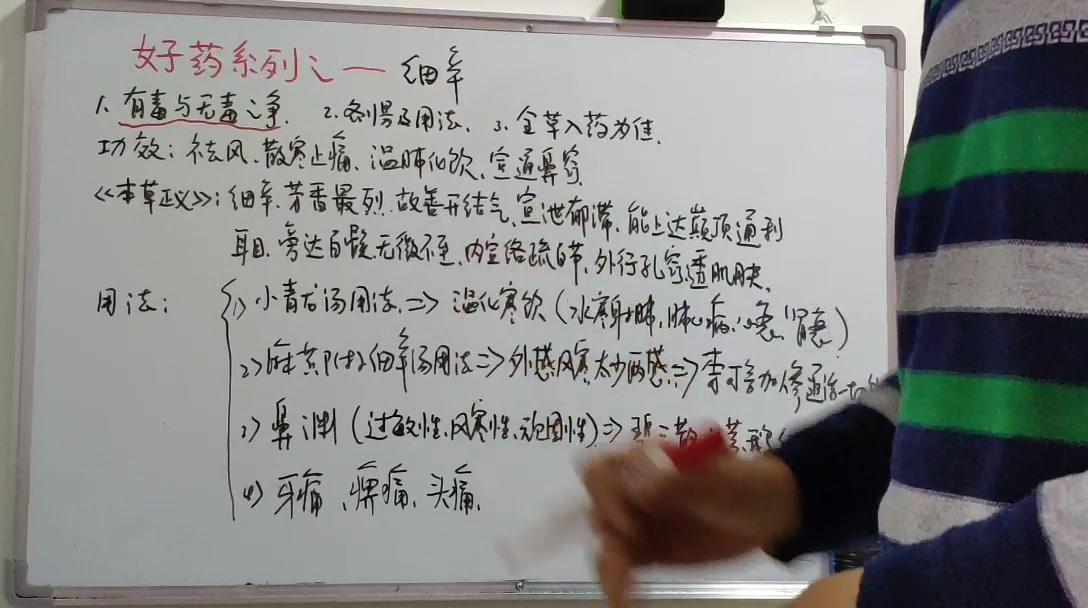 好药系列之一 细辛
1. 有毒与无毒之争. 2. 各家及用法. 3. 全草入药为佳.
功效: 祛风、散寒止痛、温肺化饮、宣通鼻窍.
《本草正义》: 细辛、芳香最烈. 故善开结气、宣泄郁滞、能上达巅顶通利
耳目、旁达百骸、无微不至、内宣络脉疏百节、外行孔窍透肌肤.
用法: (1) 小青龙汤用法、⇒ 温化寒饮 (水寒射肺、肺心病、
2) 麻黄附子细辛汤用法 ⇒ 外感风寒太少两感 ⇒ 李可老加参通治一切
3) 鼻渊 (过敏性、风寒性、顽固性) ⇒
4) 牙痛、痹痛、头痛、